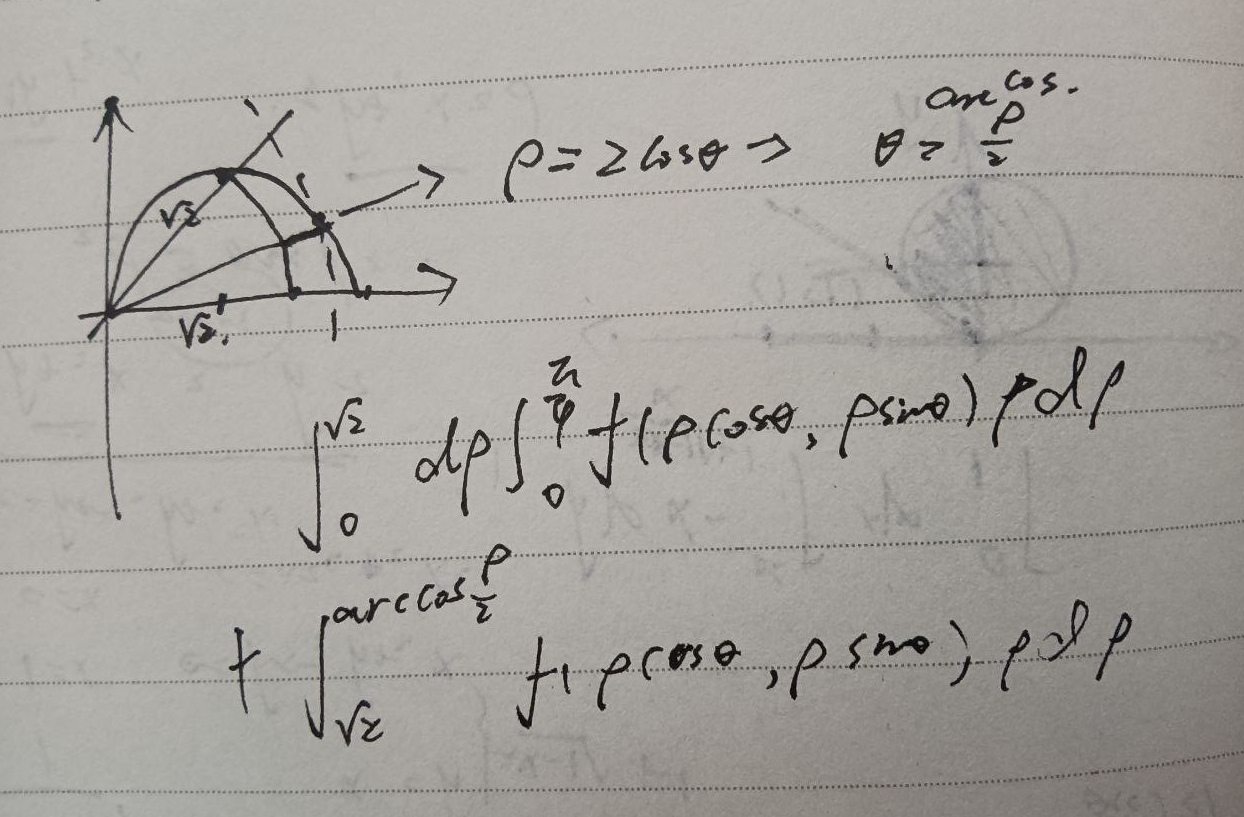 ρ = 2cosθ → θ = arccos ρ/2
√2
√2
1
∫₀^√2 dρ ∫₀^(π/4) f(ρcosθ, ρsinθ) ρdρ
+ ∫_√2^(arccos ρ/2) f(ρcosθ, ρsinθ) ρdρ